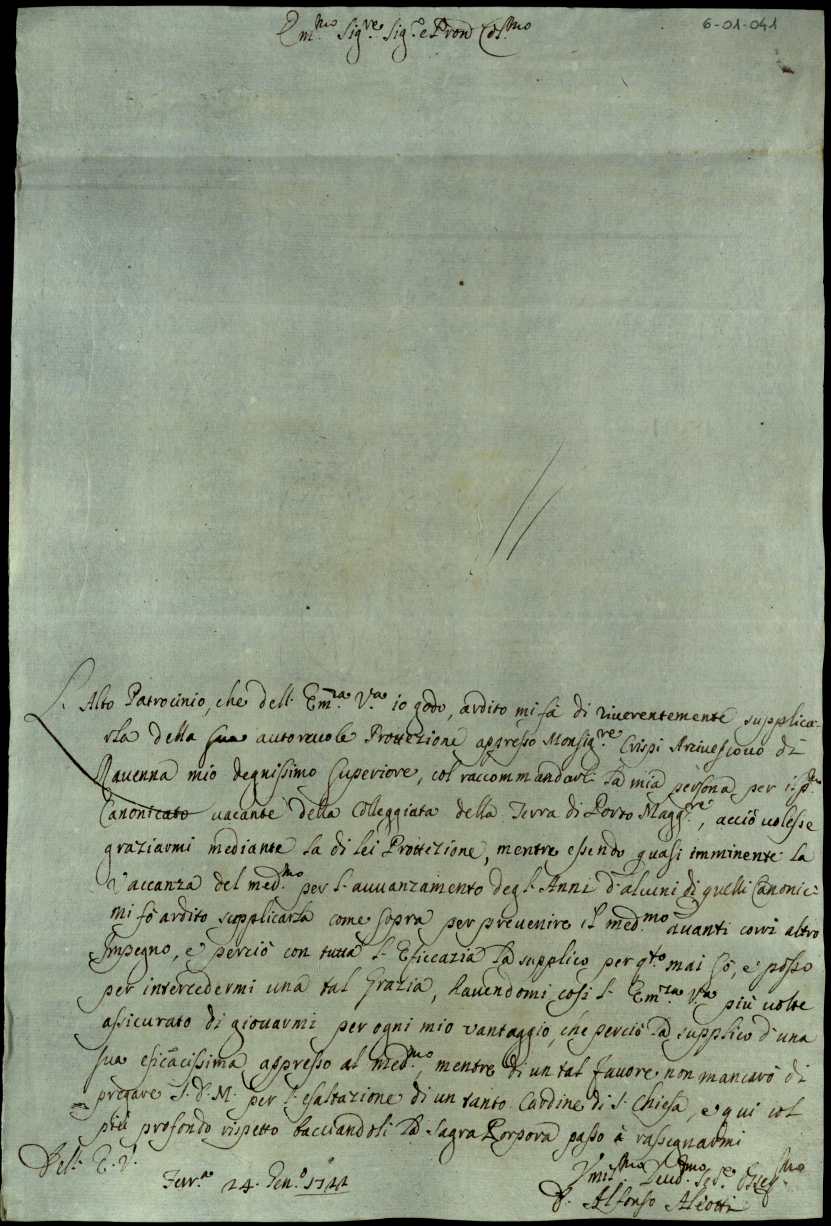 6-01-041
Em.mo Sig.re Sig.e e Pron Col.mo
L'Alto Patrocinio, che dell' Em.za V.a io godo, ardito mi fà di riverentemente supplicar-
rla della sua autorevole Protezione appresso Monsig.re Crispi Arcivescovo di
Ravenna mio degnissimo Superiore, col raccommandarli la mia persona per il p.mo
Canonicato vacante della Colleggiata della Terra di Porto Magg.re, acciò volesse
graziarmi mediante la di lei Protezione, mentre essendo quasi imminente la
Vaccanza del med.mo per l'avvanzamento degl'Anni d'alcuni di quelli Canonici
mi fò ardito supplicarla come sopra per prevenire il med.mo avanti corri altro
Impegno, e perciò con tutta l'Eficcazia la supplico per q.to mai sò, e posso
per intercedermi una tal Grazia, havendomi così l'Em.za V.a più volte
assicurato di giovarmi per ogni mio vantaggio, che perciò la supplico d'una
sua eficacissima appresso al med.mo, mentre di un tal favore non mancarò di
pregare S. D. M. per l'esaltazione di un tanto Cardine di S. Chiesa, e qui col
più profondo rispetto bacciandoli la Sagra Porpora passo à rassegnarmi
Dell' E. V.
Ferr.a 24 Gen.o 1744
Umil.mo Dev.mo Ser.e Osseq.mo
D. Alfonso Aleotti